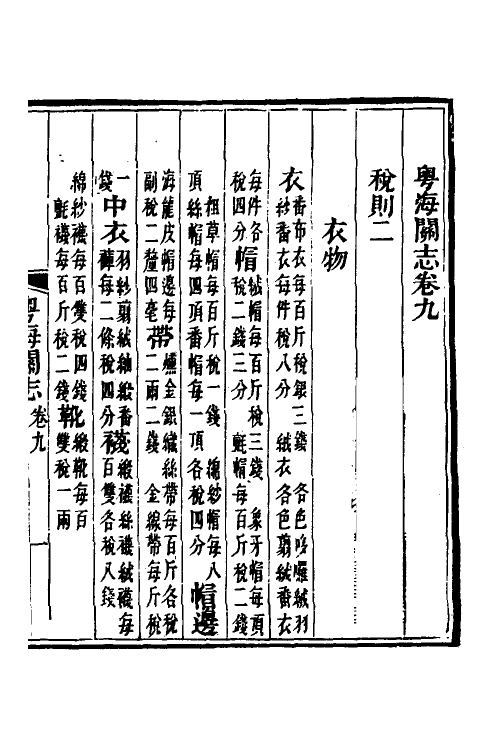 粤海關志卷九
稅則二
衣物
衣番布衣每百斤稅銀三錢　各色哆囉絨羽
紗番衣每件稅八分　絨衣各色剪絨番衣
每件各帽絨帽每百斤稅三錢　象牙帽每頂
稅四分　稅二錢三分　氈帽每百斤稅二錢
梹草帽每百斤稅一錢　綿紗帽每八
頂絲帽每四頂番帽每一頂各稅四分　帽邊
海龍皮帽邊每　帶燻金銀絨絲帶每百斤各稅
副稅二釐四毫　二兩二錢　金線帶每斤稅
一　中衣羽紗剪絨紬緞番　襪緞襪絲襪絨襪每
錢　褲每二條稅四分　百雙各稅八錢
綿紗襪每百雙稅四錢　靴緞靴每百
氈襪每百斤稅二錢　雙稅一兩
粤海關志　卷九　一